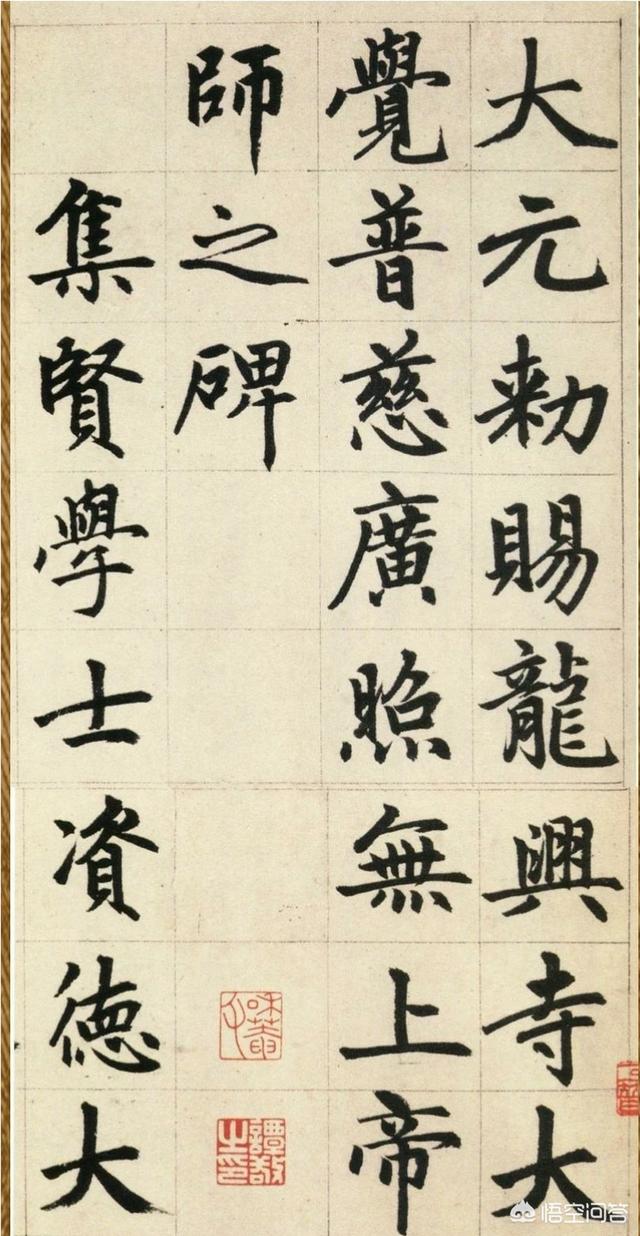 大元勑賜龍興寺大
覺普慈廣照無上帝
師之碑
集賢學士資德大
譚敬
之印
悟空问答